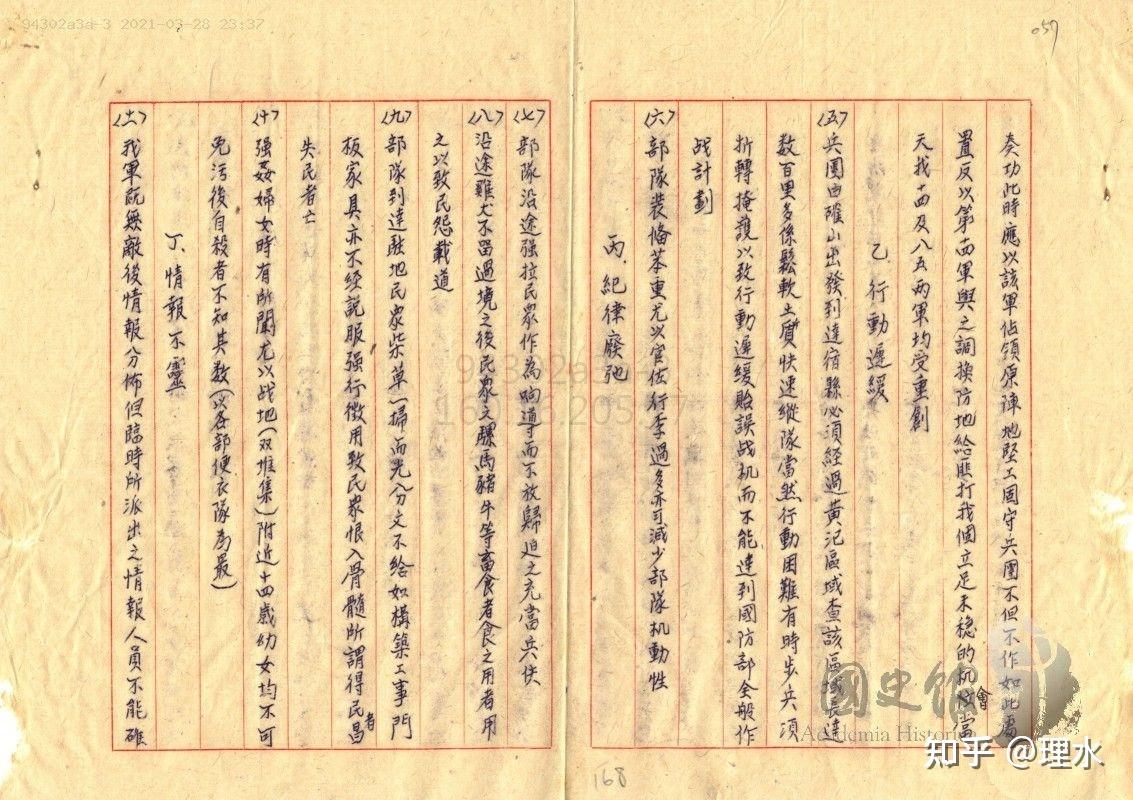 94302a3a-3 2021-03-28 23:37
057
奏功此時應以該軍佔領原陣地堅工固守兵團不但不作如此處
置反以第十四軍與之調換防地給匪打我個立足未穩的机會當
天我十四及八五兩軍均受重創
乙、行動遲緩
〈五〉兵團由確山出發到達宿縣必須經過黃汜區域查該區域長達
數百里多係鬆軟土質快速縱隊當然行動困難有時步兵須
折轉掩護以致行動遲緩貽誤战机而不能達到國防部全般作
战計劃
〈六〉部隊裝備笨重尤以官佐行李過多亦可減少部隊机動性
丙、紀律廢弛
〈七〉部隊沿途强拉民衆作為响導而不放歸迫之充當兵伕
〈八〉沿途雞犬不留過境之後民衆之騾馬豬牛等畜食者食之用者用
之以致民怨載道
〈九〉部隊到達駐地民衆柴草一掃而光分文不給如構築工事門
板家具亦不經説服强行徵用致民衆恨入骨髓所謂得民者昌
失民者亡
〈十〉强姦婦女時有所聞尤以战地(双堆集)附近十四歲幼女均不可
免污後自殺者不知其数(以各部便衣隊為最)
丁、情報不靈
〈十一〉我軍既無敵後情報分佈但臨時所派出之情報人員不能確
168
國史館
Academia Historica
知乎 @理水